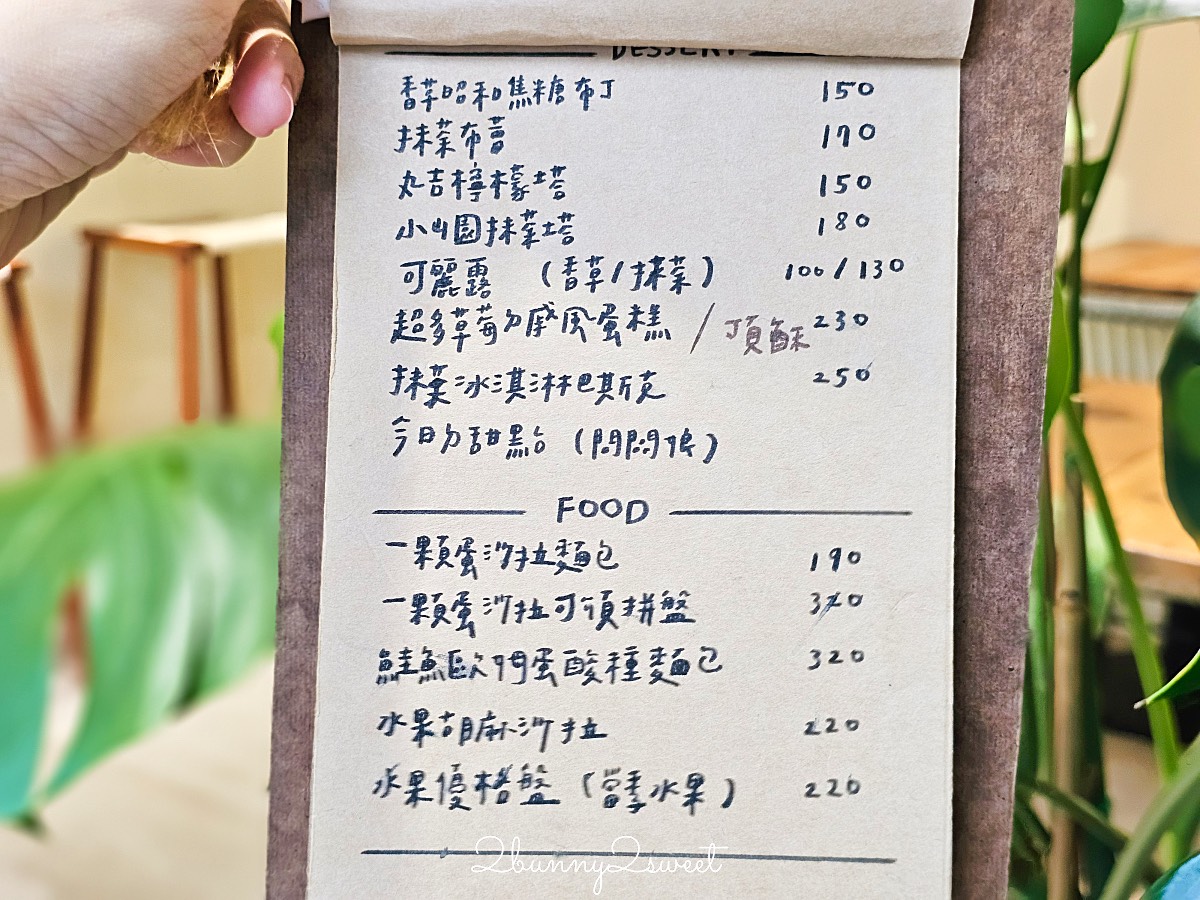 DESSERT
香草昭和焦糖布丁 150
抹茶布蕾 170
丸吉檸檬塔 150
小山園抹茶塔 180
可麗露 (香草/抹茶) 100/130
超多草莓ㄉ戚風蛋糕 /頂酥 230
抹茶冰淇淋巴斯克 250
今日ㄉ甜點 (問問俍)
FOOD
一顆蛋沙拉麵包 190
一顆蛋沙拉可頌拼盤 320
鮭魚歐姆蛋酸種麵包 320
水果胡麻沙拉 220
水果優格盤 (當季水果) 220
2bunny2sweet